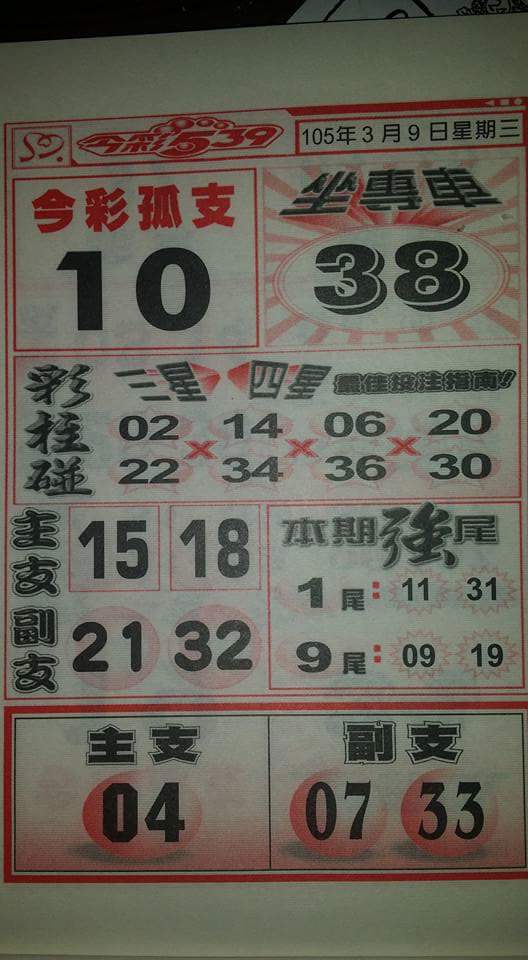 今彩539
105年3月9日星期三
今彩孤支
10
38
彩柱碰
三星 四星 最佳投注指南!!
02 × 14 × 06 × 20
22 34 36 30
主支 15 18
副支 21 32
本期強尾
1尾: 11 31
9尾: 09 19
主支
04
副支
07 33